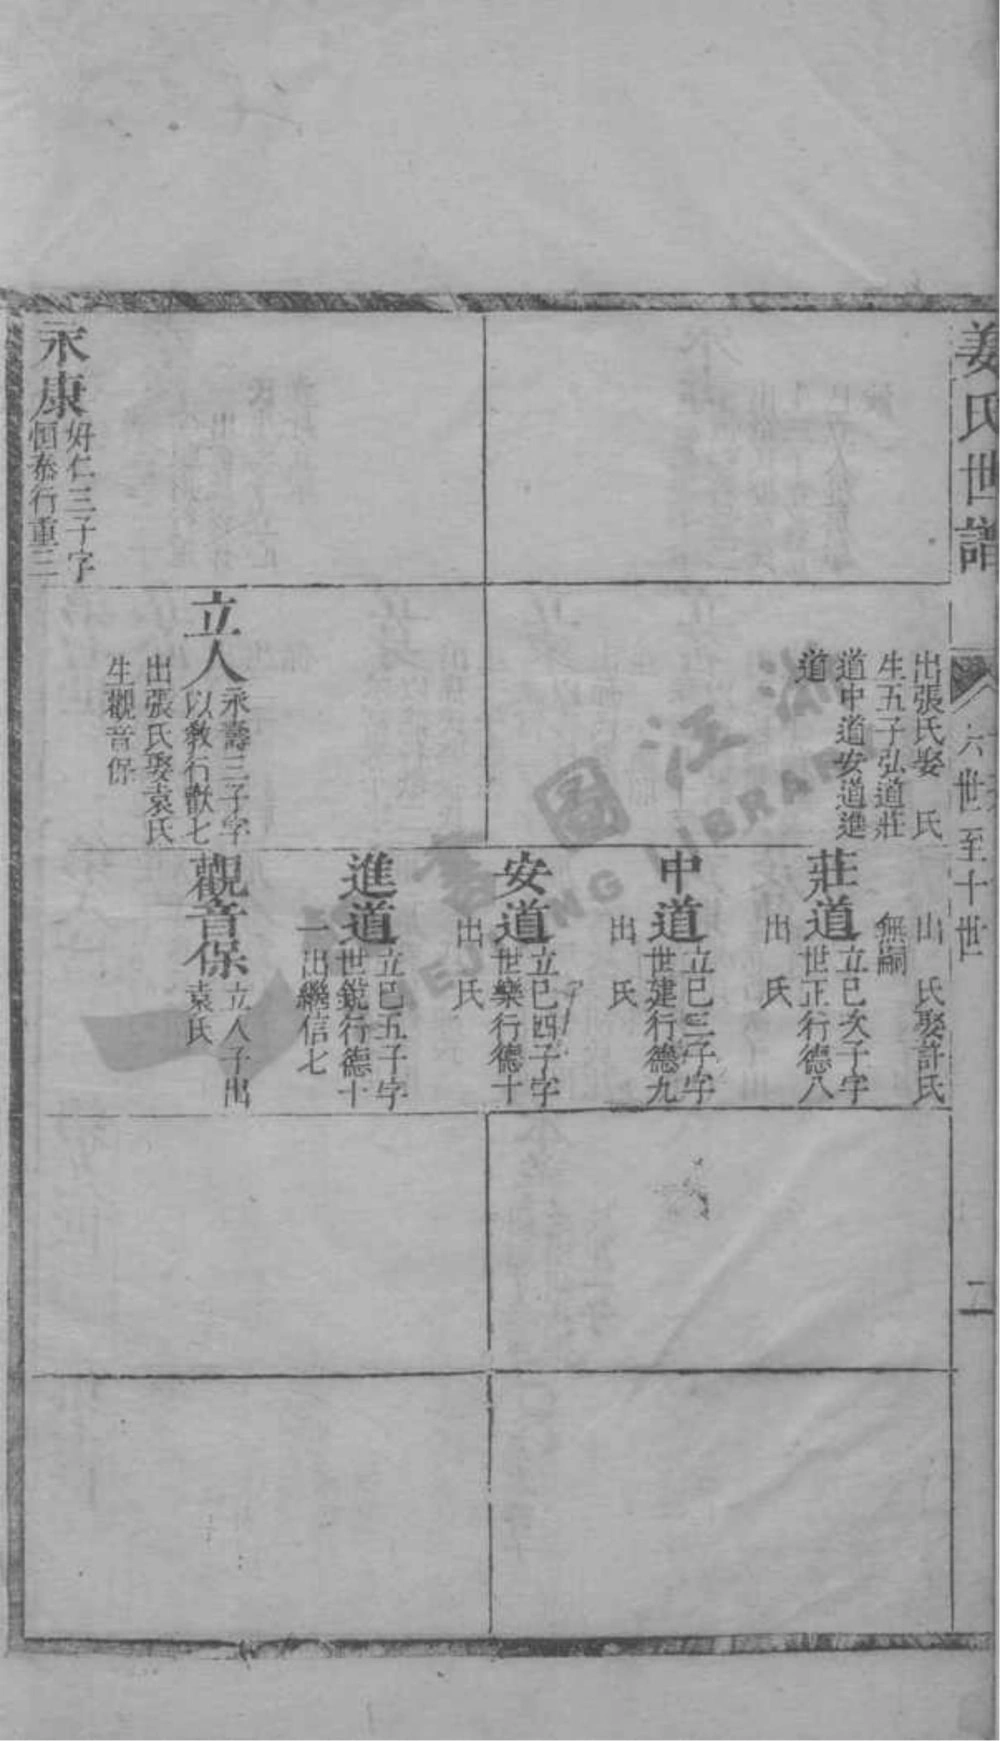 姜氏世譜
六世至十世
二
永康
好仁三子字
恒泰行重三
出張氏娶 氏
生五子弘道莊
道中道安道進
道
立人
永壽三子字
以敎行獻七
出張氏娶袁氏
生觀音保
出 氏娶許氏
無嗣
莊道
立巳次子字
世正行德八
出 氏
中道
立巳三子字
世建行德九
出 氏
安道
立巳四子字
世樂行德十
出 氏
進道
立巳五子字
世銳行德十
一出繼信七
觀音保
立人子出
袁氏
浙江圖書館
ZHEJIANG LIBRARY